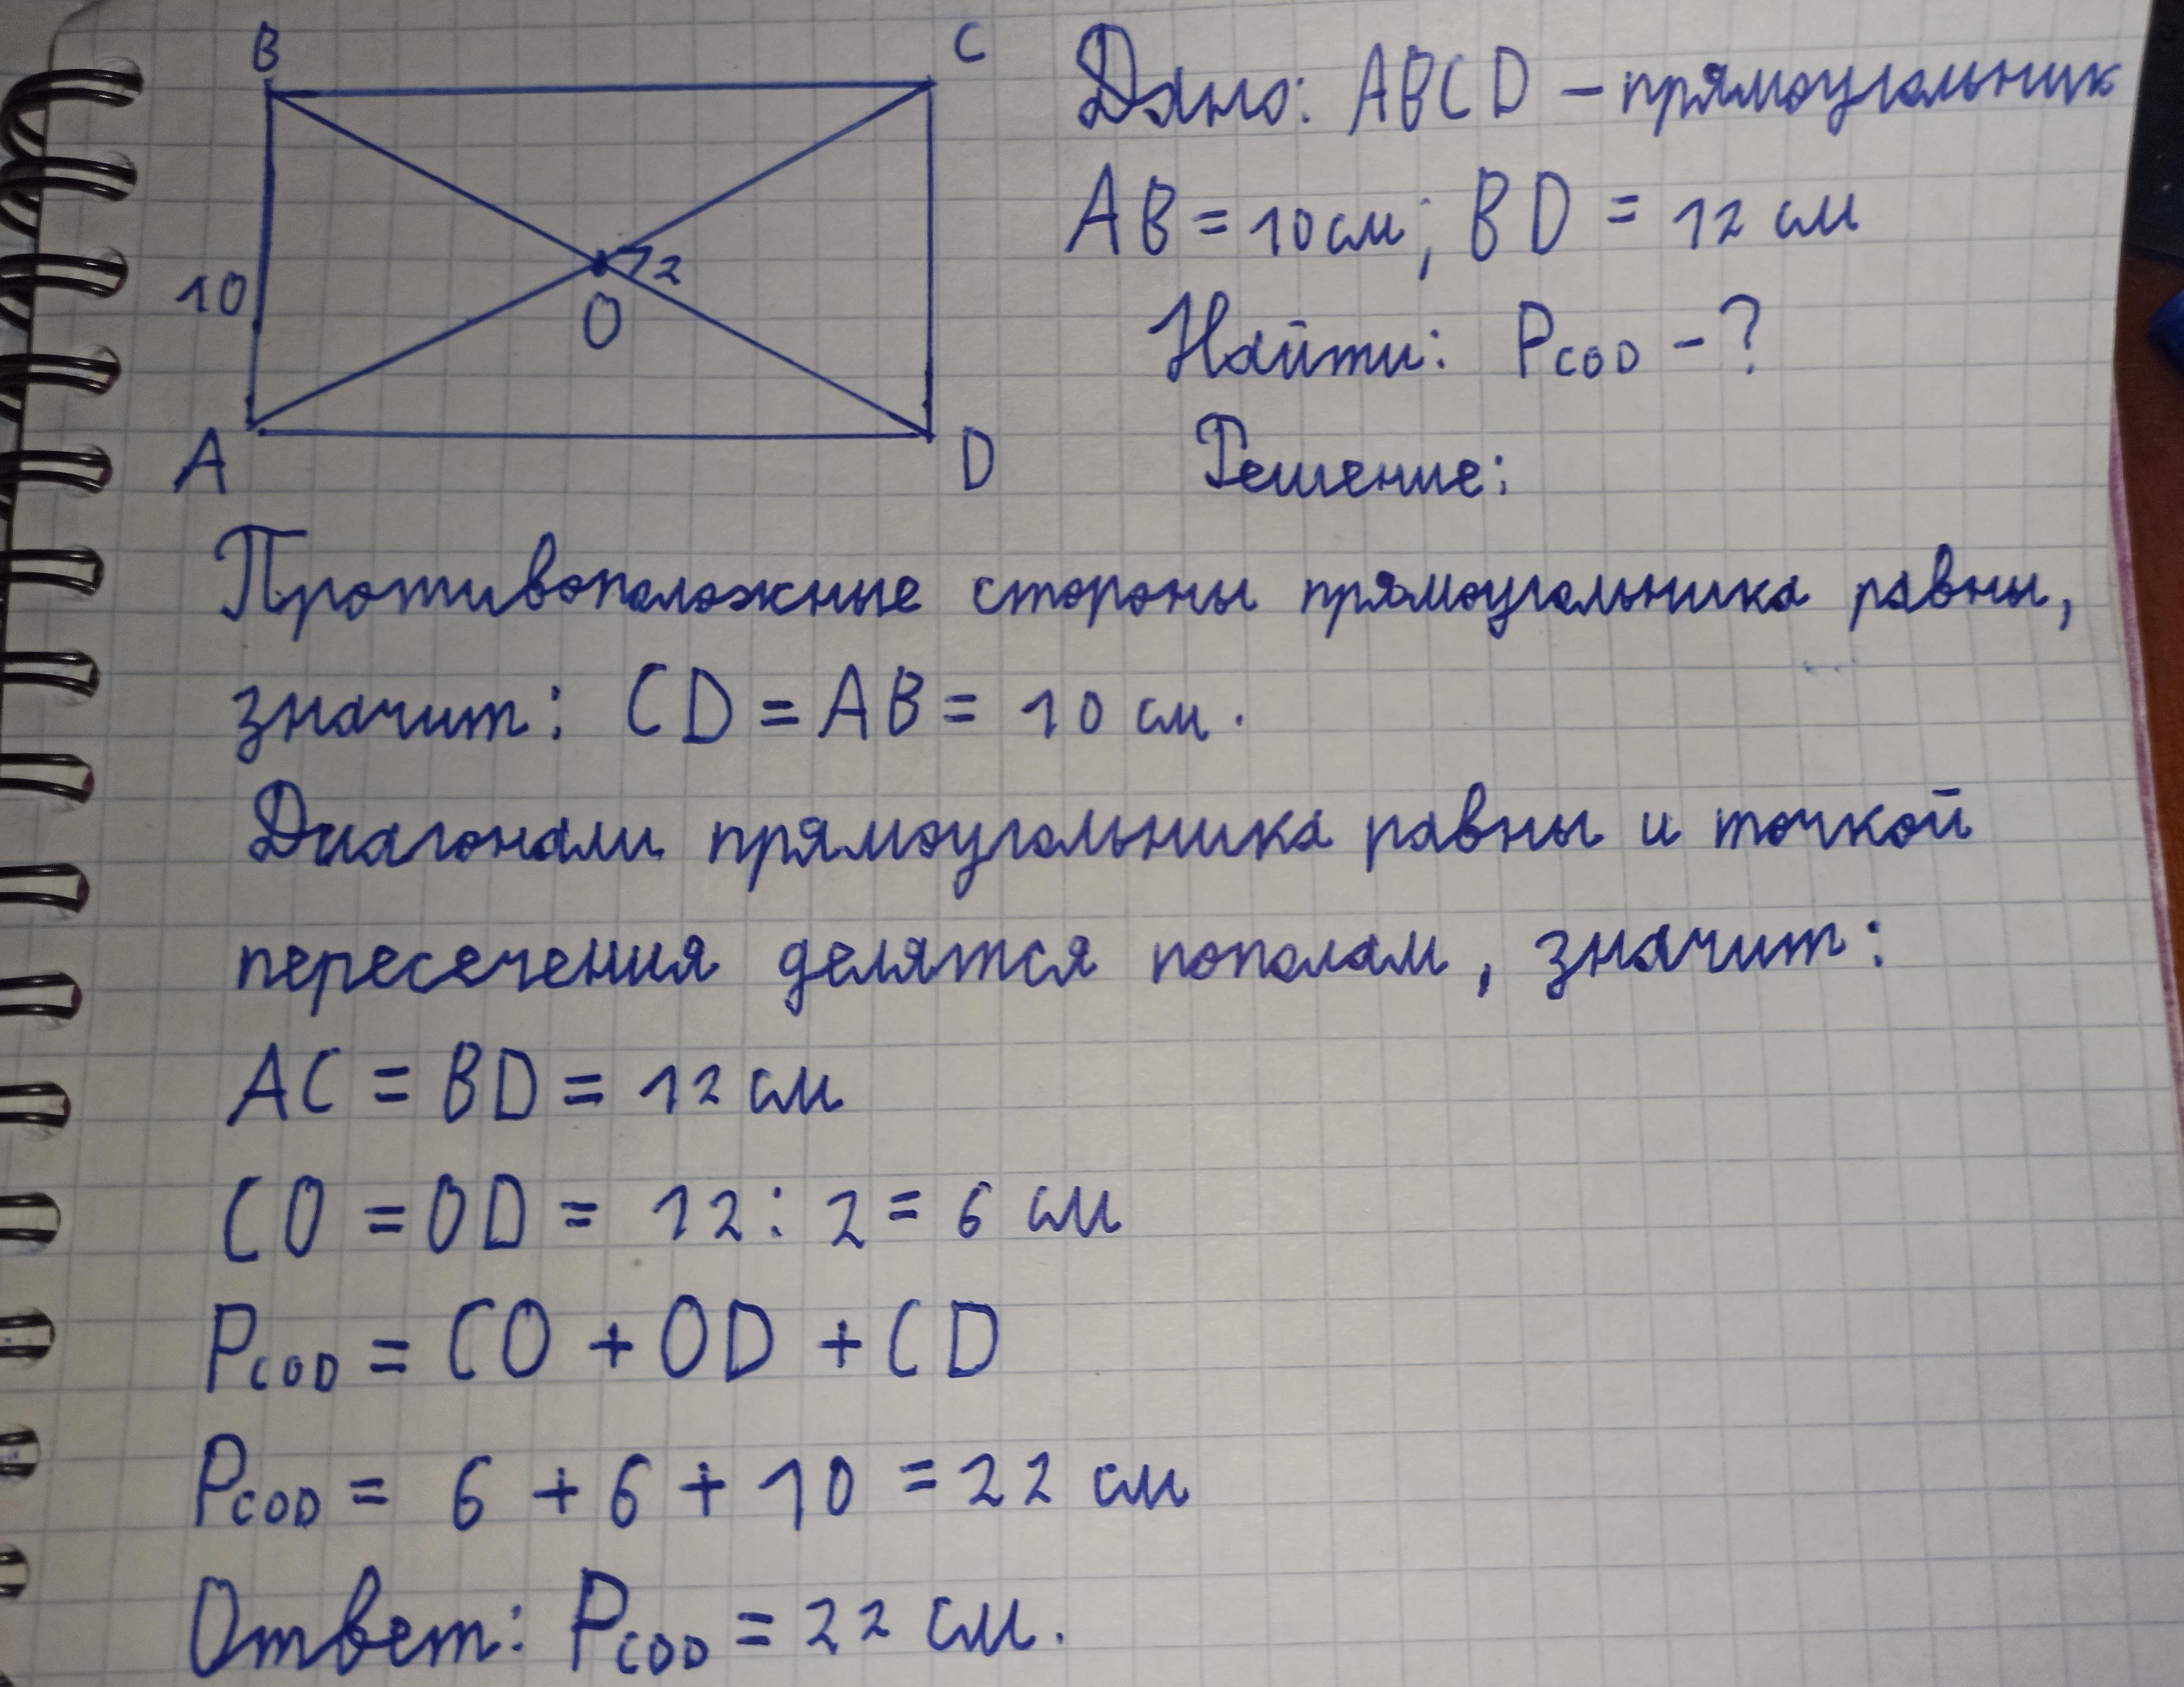 B
C
10
12
O
A
D
Дано: ABCD – прямоугольник
AB = 10 см; BD = 12 см
Найти: PCOD - ?
Решение:
Противоположные стороны прямоугольника равны,
значит: CD = AB = 10 см.
Диагонали прямоугольника равны и точкой
пересечения делятся пополам, значит:
AC = BD = 12 см
CO = OD = 12 : 2 = 6 см
PCOD = CO + OD + CD
PCOD = 6 + 6 + 10 = 22 см
Ответ: PCOD = 22 см.